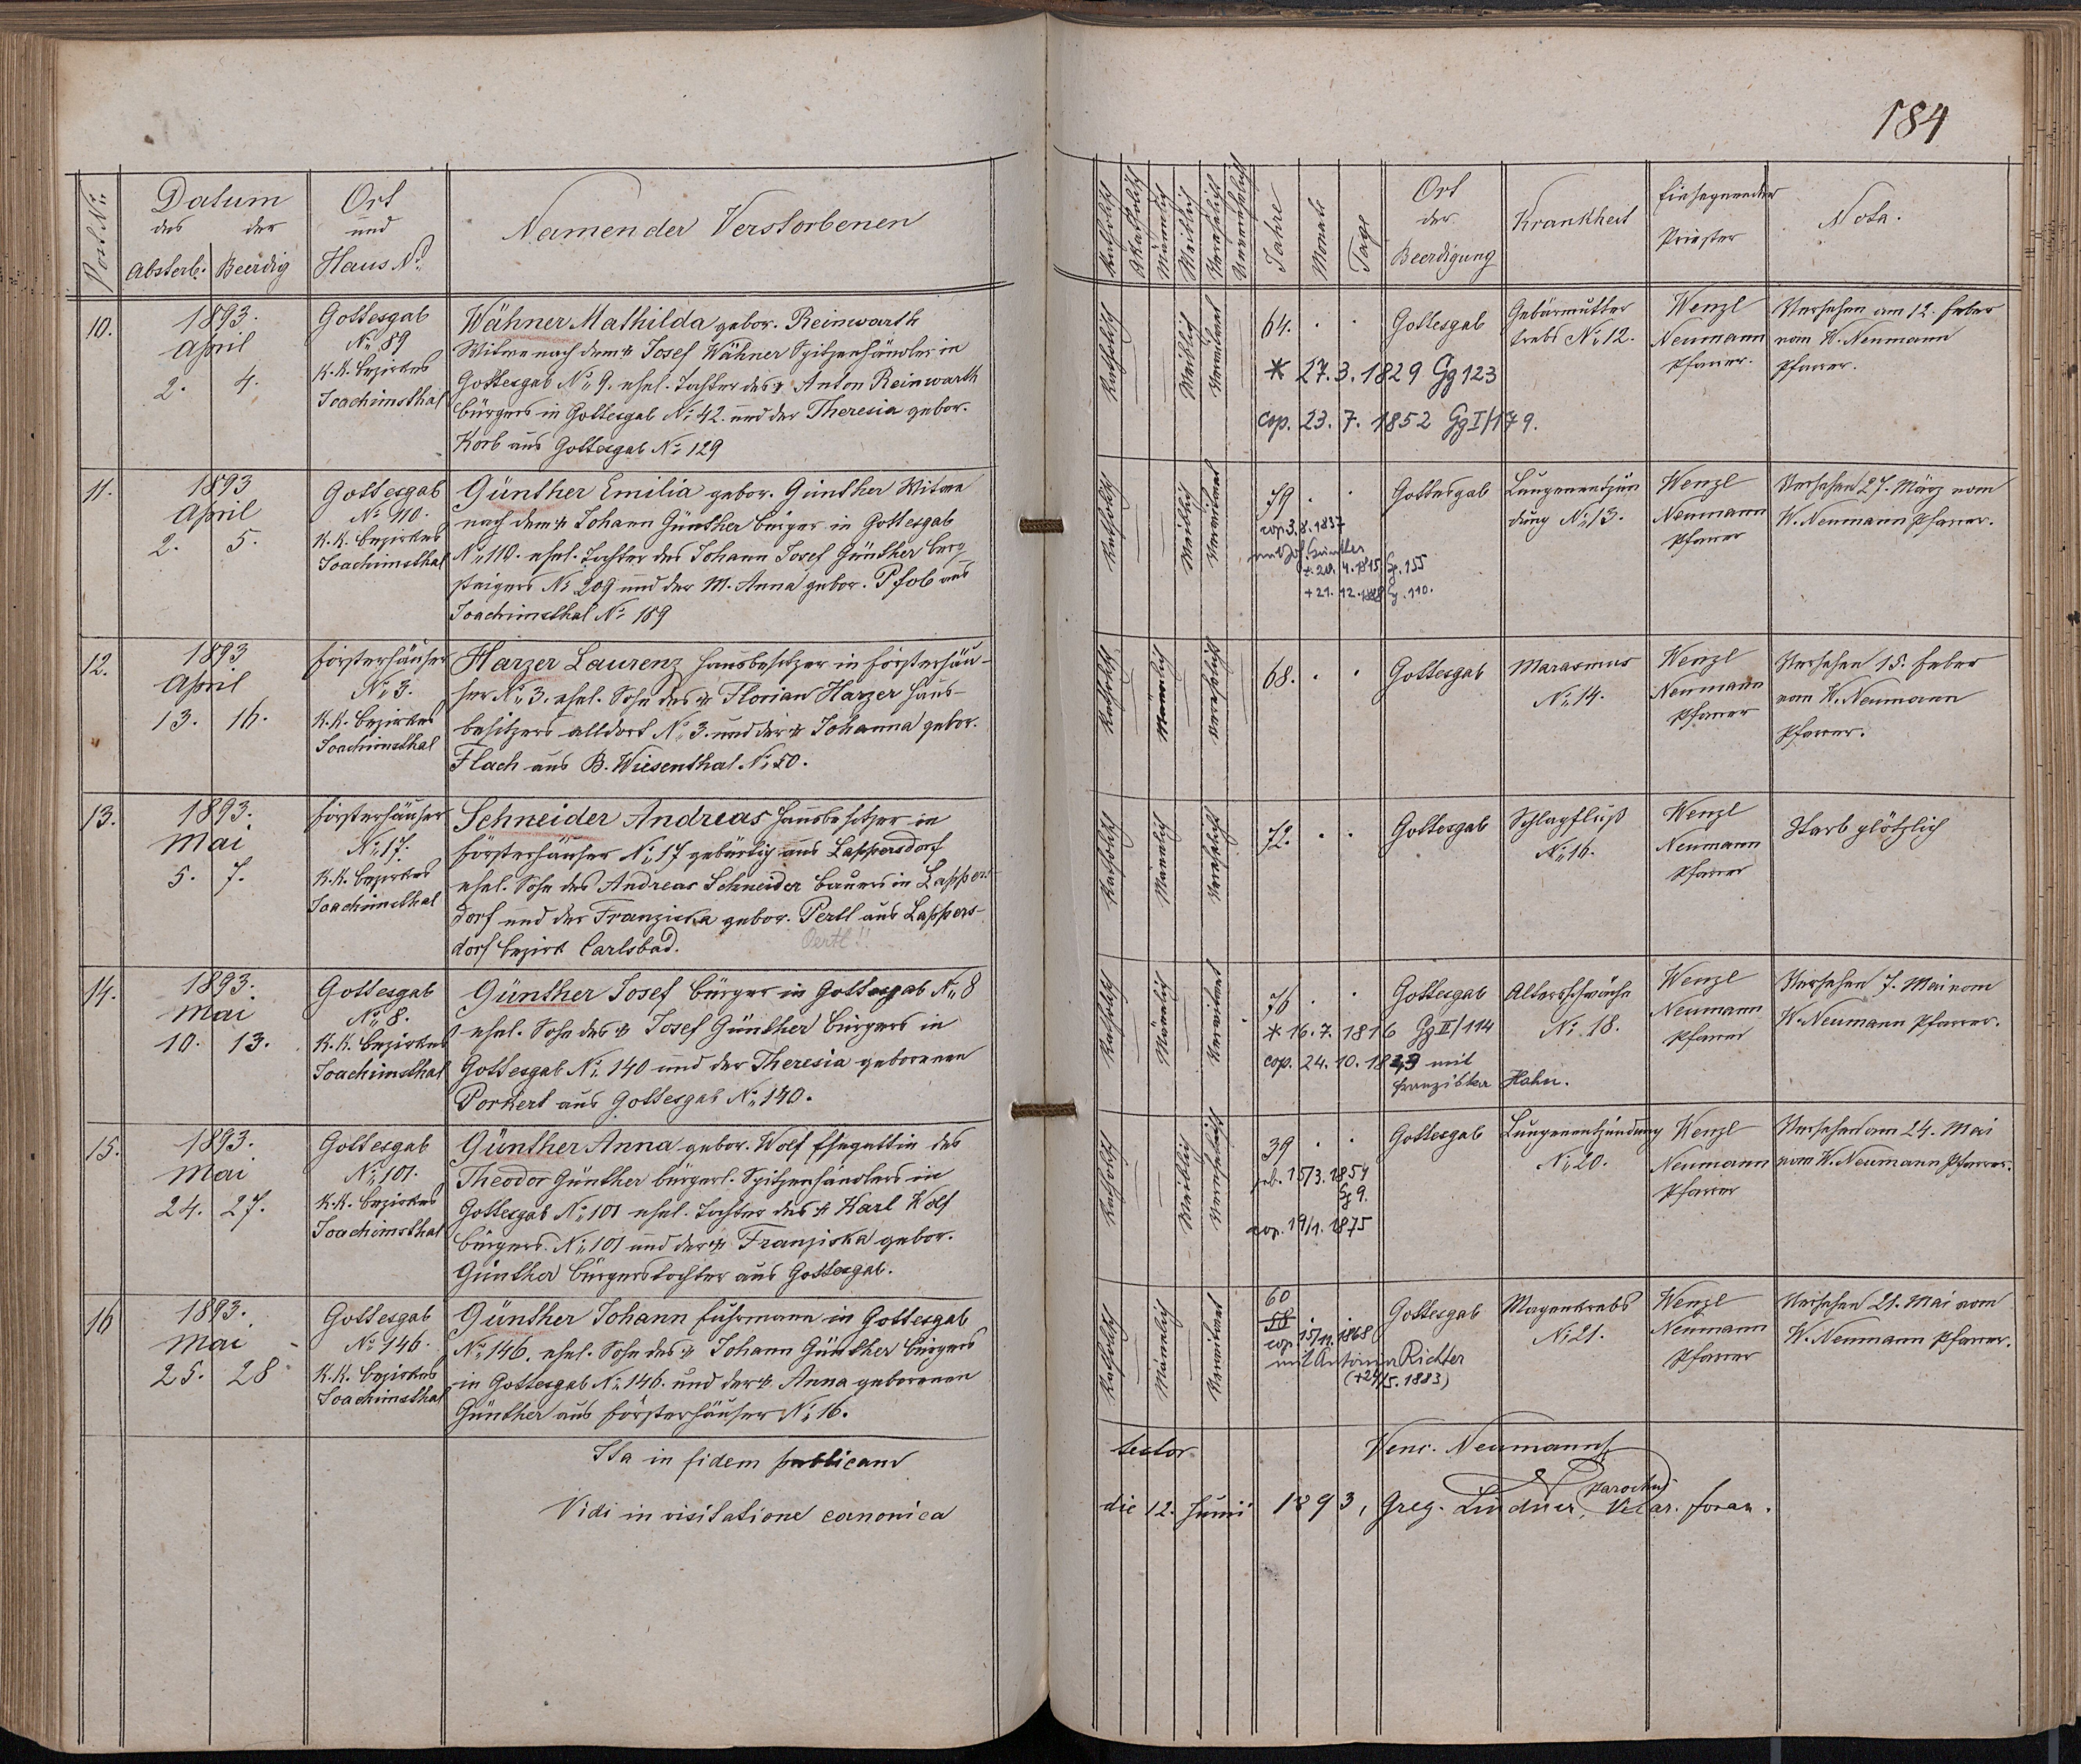 184
Post Nr:
Datum
des der
Absterb. Beerdig
Ort
und
Haus Nr.
Namen der Verstorbenen
Katholisch
Akatholisch
Männlich
Weiblich
Verehelicht
Unverehelicht
Jahre
Monate
Tage
Ort
der
Beerdigung
Krankheit
Einsegnender
Priester
Nota.
10.
1893.
April
2. 4.
Gottesgab
Nr. 89
K.K. Bezirkes
Joachimsthal
Wähner Mathilda gebor. Reinwarth
Witwe nach dem † Josef Wähner Spitzenhändler in
Gottesgab Nr. 9. ehel. Tochter des † Anton Reinwarth
Bürgers in Gottesgab Nr. 42. und der Theresia gebor.
Korb aus Gottesgab Nr. 129
Katholisch
Weiblich
Verwitwet
64. . .
Gottesgab
Gebärmutter
krebs Nr. 12.
Wenzl
Neumann
Pfarrer.
Versehen am 12. Feber
vom W. Neumann
Pfarrer.
* 27.3.1829 Gg 123
cop. 23.7.1852 Gg I/179.
11.
1893
April
2. 5.
Gottesgab
Nr. 110.
K.K. Bezirkes
Joachimsthal
Günther Emilia gebor. Günther Witwe
nach dem † Johann Günther Bürger in Gottesgab
Nr. 110. ehel. Tochter des Johann Josef Günther Berg
steigers Nr. 209 und der M. Anna gebor. Pfob aus
Joachimsthal Nr. 189
Katholisch
Weiblich
Verwitwet
79 . .
cop. 3.8.1837
mit Joh. Günther
*. 20.4.1815 Gg. 155
+ 21.12.1888 Gg. 110.
Gottesgab
Lungenentzün
dung Nr. 13.
Wenzl
Neumann
Pfarrer
Versehen 27. März vom
W. Neumann Pfarrer.
12.
1893
April
13. 16.
Försterhäuser
Nr. 3.
K.K. Bezirkes
Joachimsthal
Harzer Laurenz Hausbesitzer in Försterhäu-
ser Nr. 3. ehel. Sohn des † Florian Harzer Haus-
besitzers alldort Nr. 3. und der † Johanna gebor.
Flach aus B. Wiesenthal. Nr. 50.
Katholisch
Männlich
Verehelicht
68. . .
Gottesgab
Marasmus
Nr. 14.
Wenzl
Neumann
Pfarrer
Versehen 15. Feber
vom W. Neumann
Pfarrer.
13.
1893.
Mai
5. 7.
Försterhäuser
Nr. 17.
K.K. Bezirkes
Joachimsthal
Schneider Andreas Hausbesitzer in
Försterhäuser Nr. 17 gebürtig aus Lappersdorf
ehel. Sohn des Andreas Schneider Bauers in Lappers-
dorf und der Franziska gebor. Pertl aus Lappers-
dorf Bezirk Carlsbad.
Oertl!!
Katholisch
Männlich
Verehelicht
72. . .
Gottesgab
Schlagfluß
Nr. 16.
Wenzl
Neumann
Pfarrer
Starb plötzlich
14.
1893.
Mai
10. 13.
Gottesgab
Nr. 8.
K.K. Bezirkes
Joachimsthal
Günther Josef Bürger in Gottesgab Nr. 8
ehel. Sohn des † Josef Günther Bürgers in
Gottesgab Nr. 140 und der Theresia geborenen
Porkert aus Gottesgab Nr. 140.
Katholisch
Männlich
Verwitwet
76 . .
* 16.7.1816 Gg II/114
cop. 24.10.1843 mit
Franziska Hahn.
Gottesgab
Altersschwäche
Nr. 18.
Wenzl
Neumann
Pfarrer
Versehen 7. Mai vom
W. Neumann Pfarrer.
15.
1893.
Mai
24. 27.
Gottesgab
Nr. 101.
K.K. Bezirkes
Joachimsthal
Günther Anna gebor. Wolf Ehegattin des
Theodor Günther bürgerl. Spitzenhändlers in
Gottesgab Nr. 101 ehel. Tochter des † Karl Wolf
Bürgers Nr. 101 und der † Franziska gebor.
Günther Bürgerstochter aus Gottesgab.
Katholisch
Weiblich
Verehelicht
39 . .
geb. 15/3.1854
Gg 9.
cop. 19/1.1875
Gottesgab
Lungenentzündung
Nr. 20.
Wenzl
Neumann
Pfarrer
Versehen am 24. Mai
vom W. Neumann Pfarrer.
16
1893.
Mai
25. 28
Gottesgab
Nr. 146.
K.K. Bezirkes
Joachimsthal
Günther Johann Fuhrmann in Gottesgab
Nr. 146. ehel. Sohn des † Johann Günther Bürgers
in Gottesgab Nr. 146. und der † Anna geborenen
Günther aus Försterhäuser Nr. 16.
Katholisch
Männlich
Verwitwet
60
58
cop. 15/11.1868
mit Antonia Richter
(+24/5.1883)
Gottesgab
Magenkrebs
Nr. 21.
Wenzl
Neumann
Pfarrer
Versehen 21. Mai vom
W. Neumann Pfarrer.
Ita in fidem publicam testor Venc. Neumann
parochus
Vidi in visitatione canonica die 12. Junii 1893, Greg. Lindner, Vicar. foran.